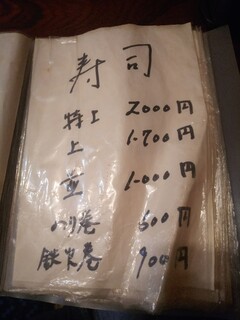 寿司
特上 2000円
上 1.700円
並 1.000円
のり巻 600円
鉄火巻 900円